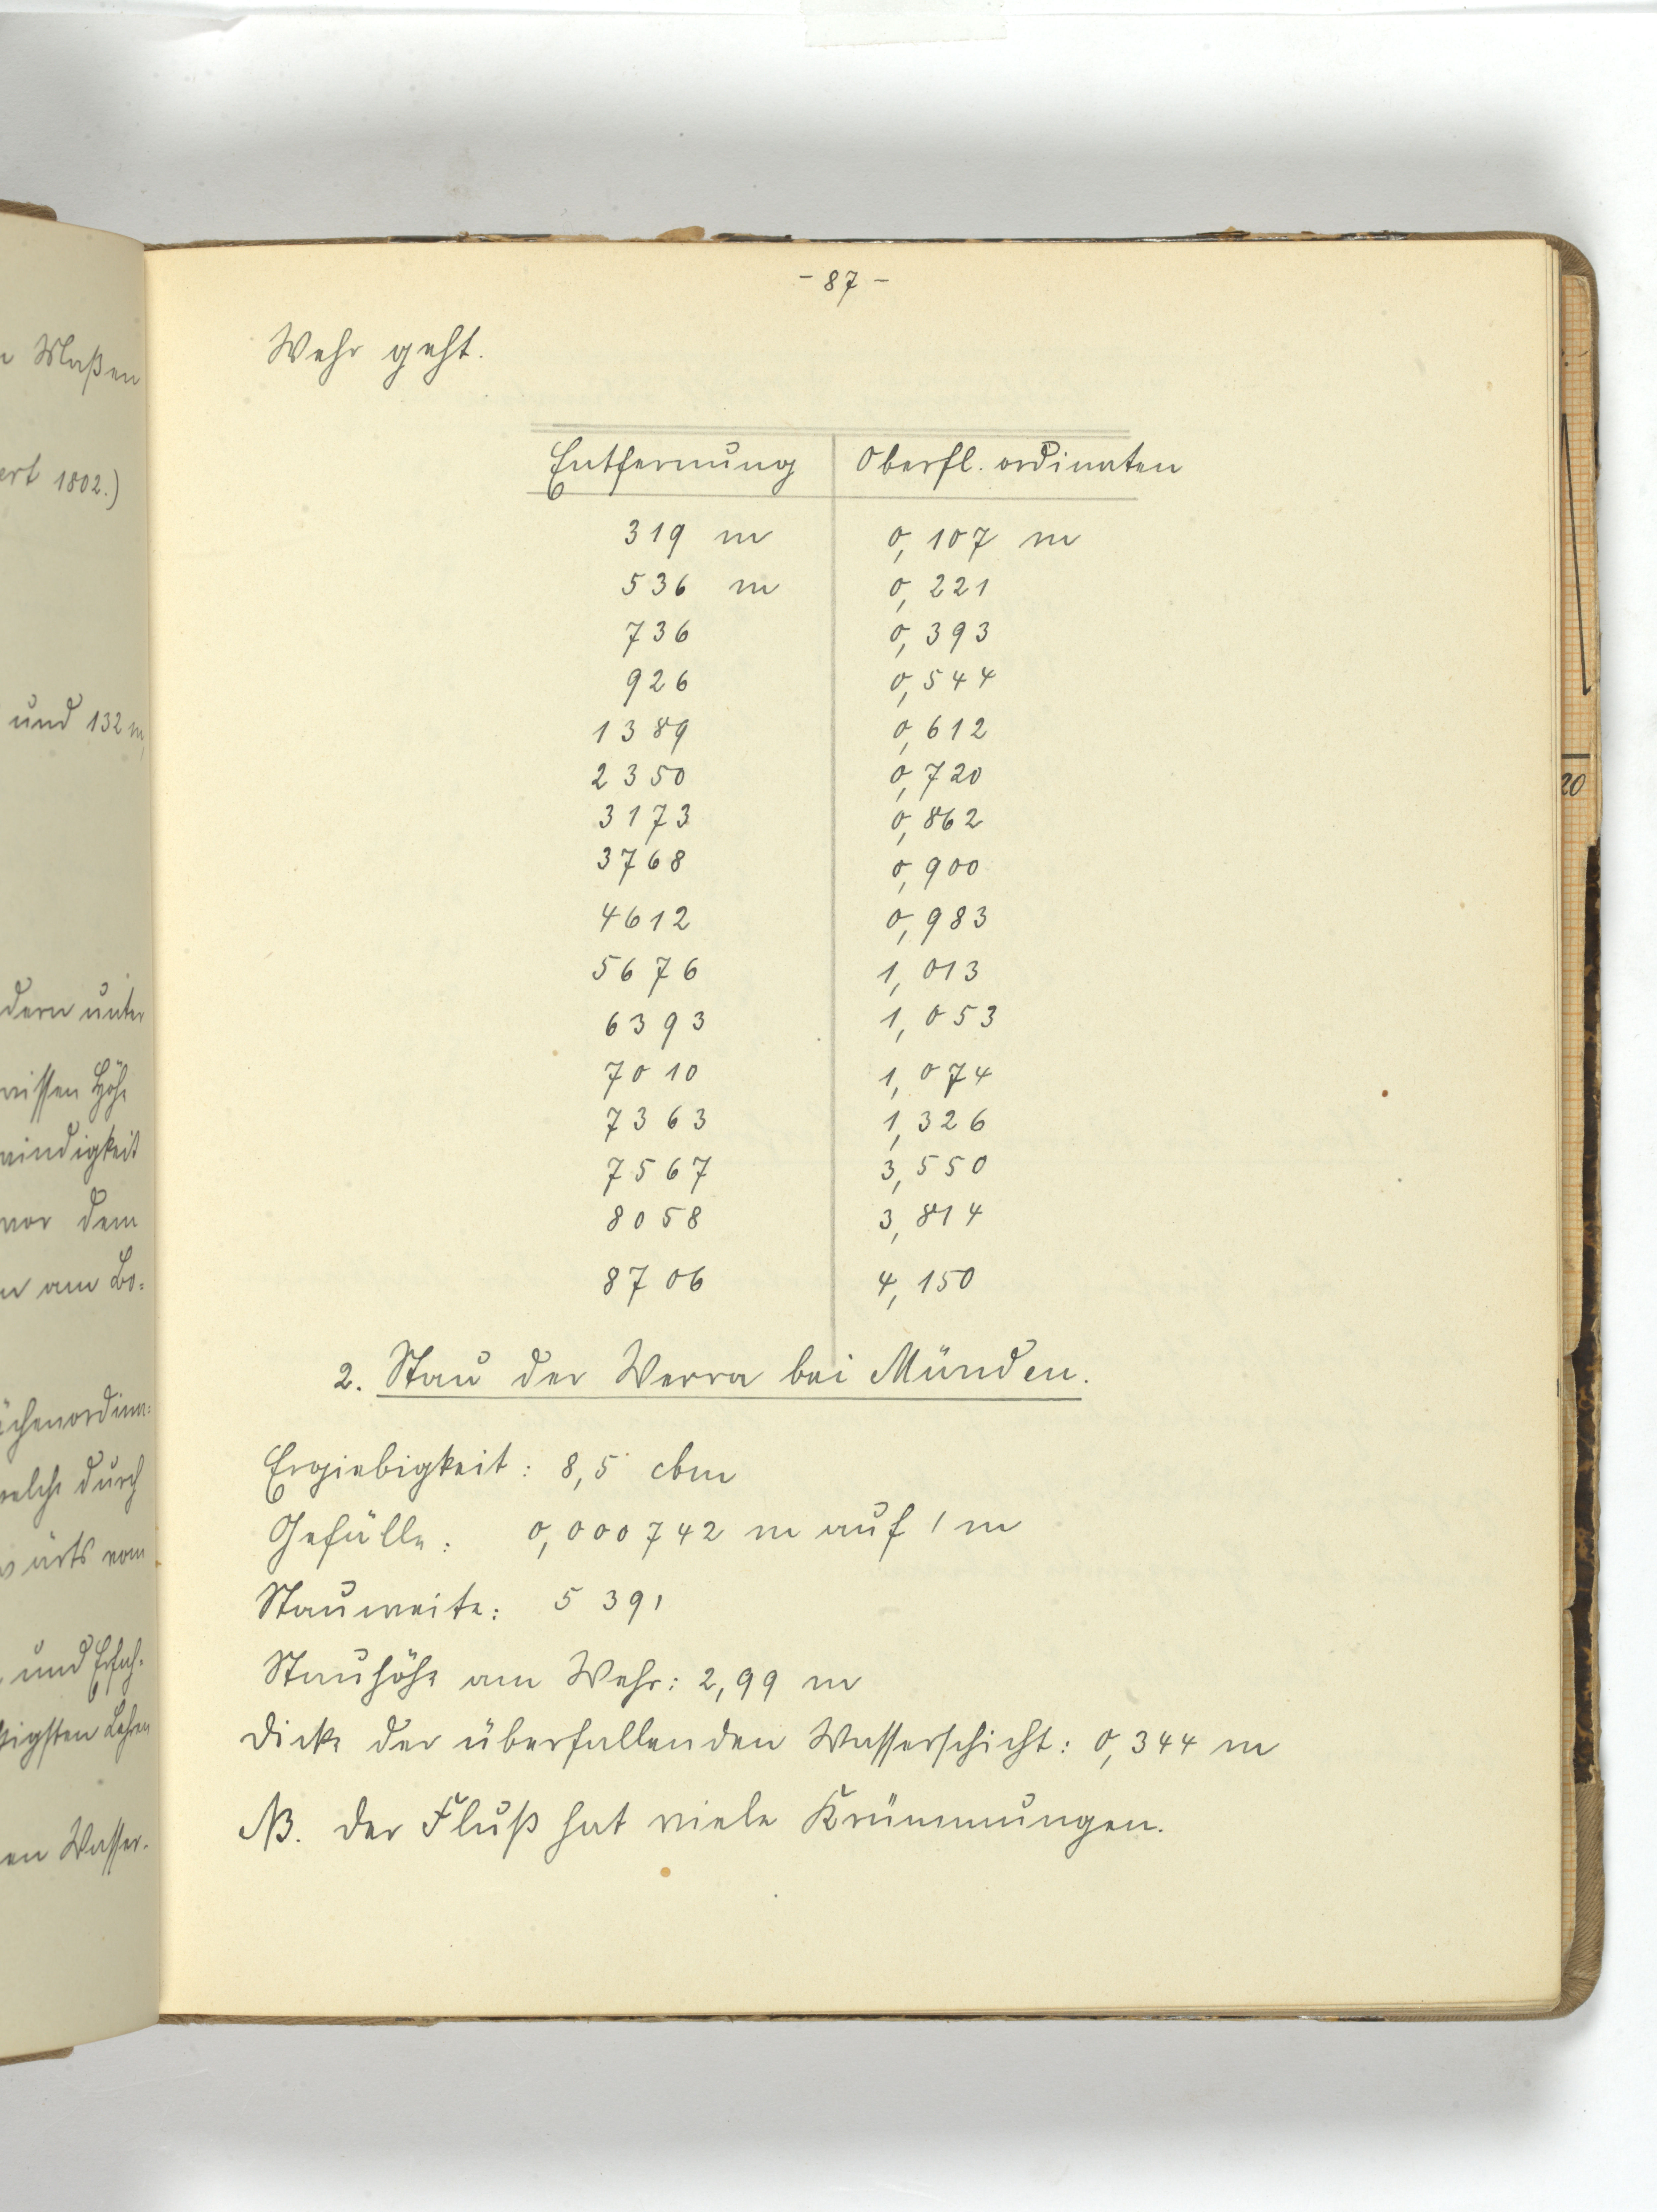 - 87 -
Wehr geht.
Entfernung Oberfl. ordinaten
319 m 0,107 m
536 m 0,221
736 0,393
926 0,544
1389 0,612
2350 0,720
3173 0,862
3768 0,900
4612 0,983
5676 1,013
6393 1,053
7010 1,074
7363 1,326
7567 3,550
8058 3,814
8706 4,150
2. Stau der Werra bei Münden.
Ergiebigkeit: 8,5 cbm
Gefälle: 0,000742 m auf 1 m
Stauweite: 5391
Stauhöhe am Wehr: 2,99 m
Dicke der überfallenden Wasserschicht: 0,344 m
NB. Der Fluß hat viele Krümmungen.
Maßen
1802.)
und 132 m,
unter
Höhe
vor dem
am Bo-
welche durch
vom
und Erfah-
Lehren
Wasser-
20